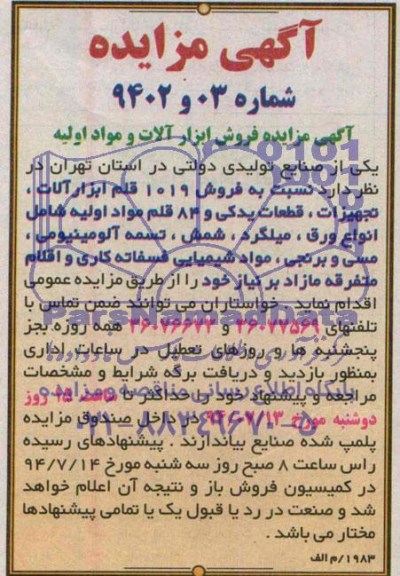 آگهی مزایده
شماره ۰۳ و ۹۴۰۲
آگهی مزایده فروش ابزار آلات و مواد اولیه
یکی از صنایع تولیدی دولتی در استان تهران در
نظر دارد نسبت به فروش ۱۰۱۹ قلم ابزارآلات ،
تجهیزات ، قطعات یدکی و ۸۴ قلم مواد اولیه شامل
انواع ورق ، میلگرد ، شمش ، تسمه آلومینیومی ،
مسی و برنجی ، مواد شیمیایی فسفاته کاری و اقلام
متفرقه مازاد بر نیاز خود را از طریق مزایده عمومی
اقدام نماید . خواستاران می توانند ضمن تماس با
تلفنهای ۳۶۰۷۷۵۶۹ و ۳۶۰۷۶۶۷۲ همه روزه بجز
پنجشنبه ها و روزهای تعطیل در ساعات اداری
بمنظور بازدید و دریافت برگه شرایط و مشخصات
مراجعه و پیشنهاد خود را حداکثر تا ساعت ۱۵ روز
دوشنبه مورخ ۹۴/۷/۱۳ در داخل صندوق مزایده
پلمپ شده صنایع بیاندازند . پیشنهادهای رسیده
راس ساعت ۸ صبح روز سه شنبه مورخ ۹۴/۷/۱۴
در کمیسیون فروش باز و نتیجه آن اعلام خواهد
شد و صنعت در رد یا قبول یک یا تمامی پیشنهادها
مختار می باشد .
۱۹۸۳/م الف
ParsNamadData
پایگاه اطلاع رسانی مناقصه و مزایده
۰۲۱-۸۸۳۴۹۶۷۰-۵